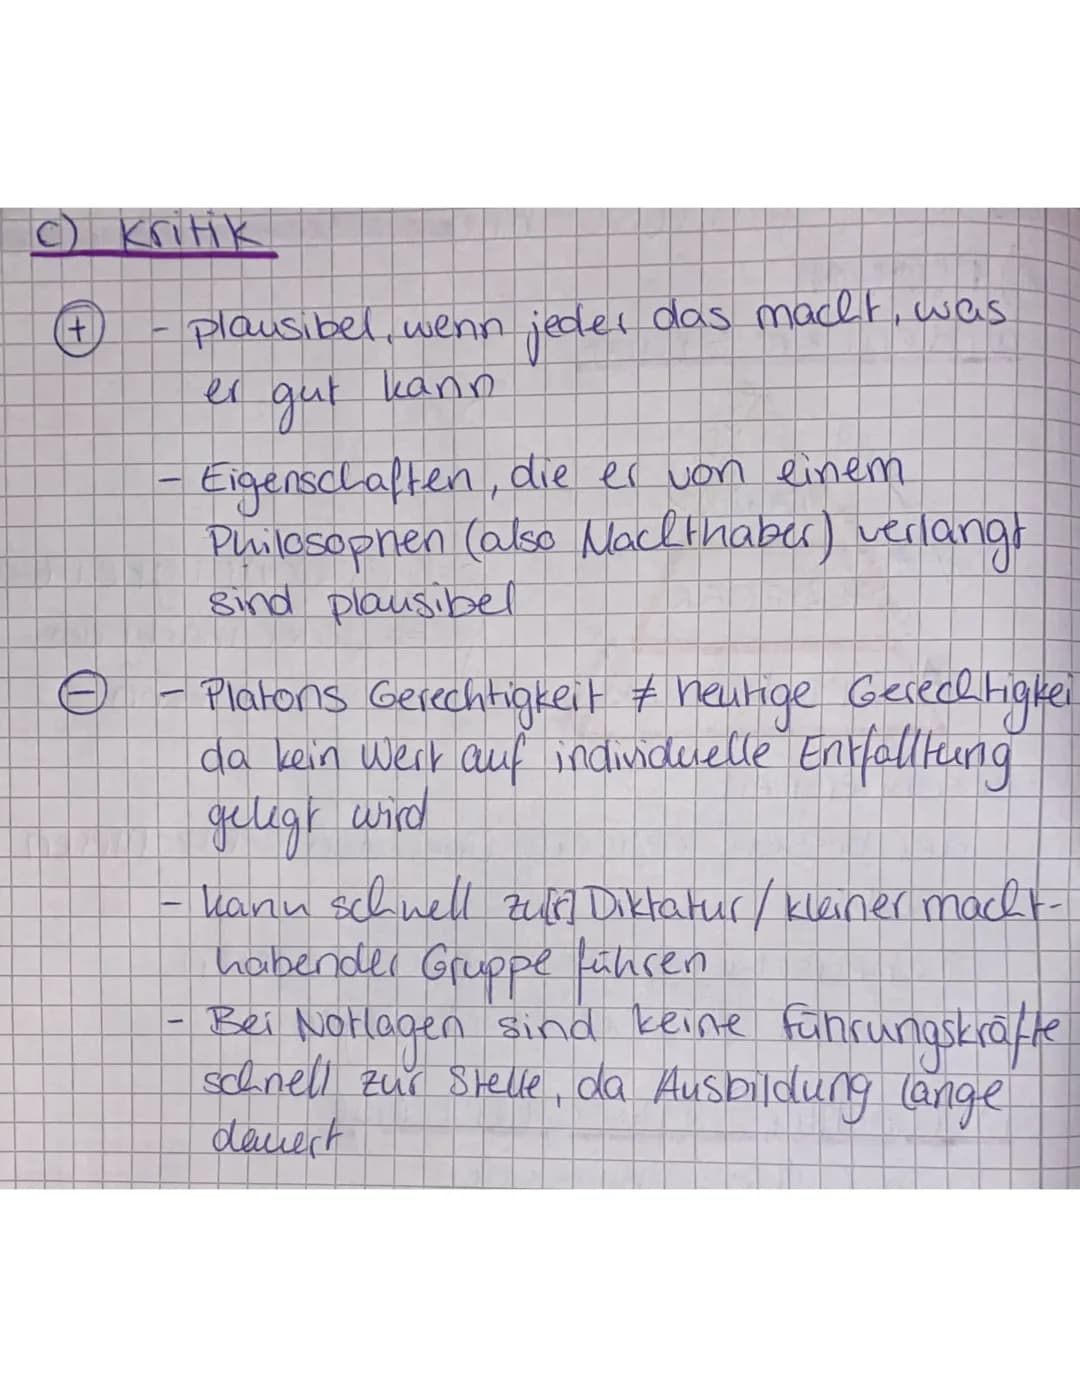 c) Kritik
(+) - plausibel, wenn jeder das macht, was
er gut kann
- Eigenschaften, die er von einem
Philosophen (also Machthaber) verlangt
sind plausibel
(-) - Platons Gerechtigkeit ≠ heutige Gerechtigkei
da kein Wert auf individuelle Entfalltung
gelegt wird
- kann schnell zu[r] Diktatur/ kleiner macht-
habender Gruppe führen
- Bei Notlagen sind keine Führungskräfte
schnell zur Stelle, da Ausbildung lange
dauert